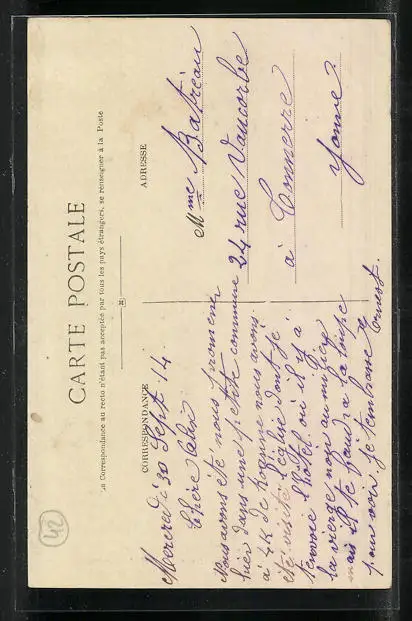 CARTE POSTALE
La Correspondance au recto n'étant pas acceptée par tous les pays étrangers, se renseigner à la Poste
CORRESPONDANCE
Mercredi 30 Sept 14
Chère Célin
Nous avons été nous promener
hier dans une petite commune
à 4K de Roanne nous avons
été visité l'église dont je
t'envoie l'hôtel où il y a
la vierge noir au milieu
mais il te faudra la
pour voir je t'embrasse Ernest.
ADRESSE
Mme Rafreau
24 rue Vaucorbe
à Tonnerre
Yonne
42